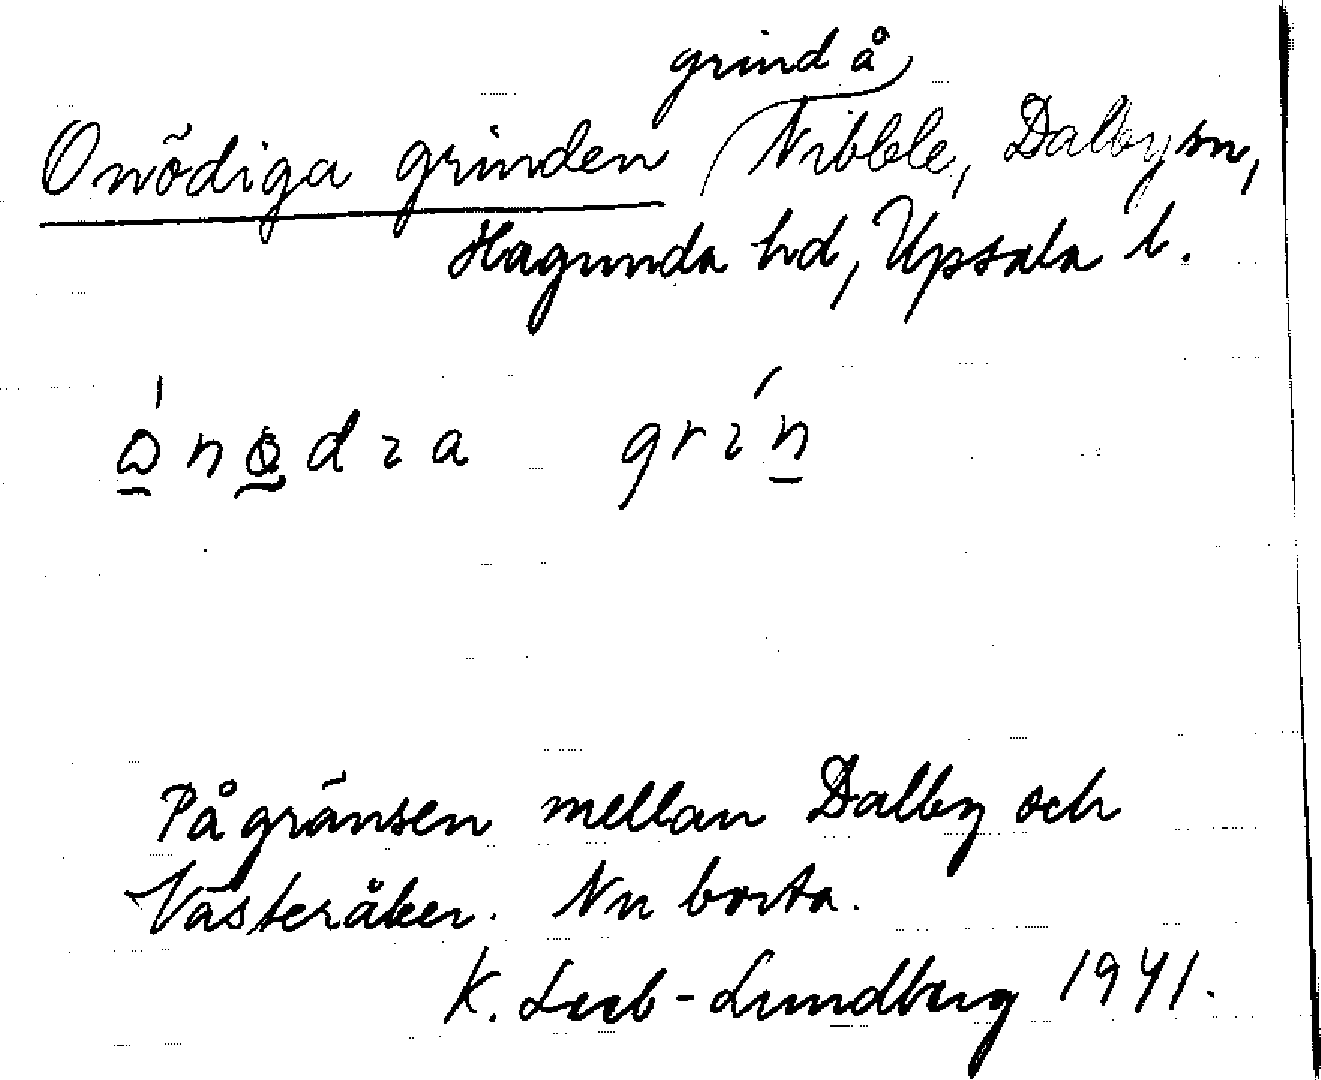 grind å
Onödiga grinden Nibble, Dalby sn,
Hagunda hd, Upsala l.
På gränsen mellan Dalby och
Västeråker. Nu borta.
K. Leeb-Lundberg 1941.